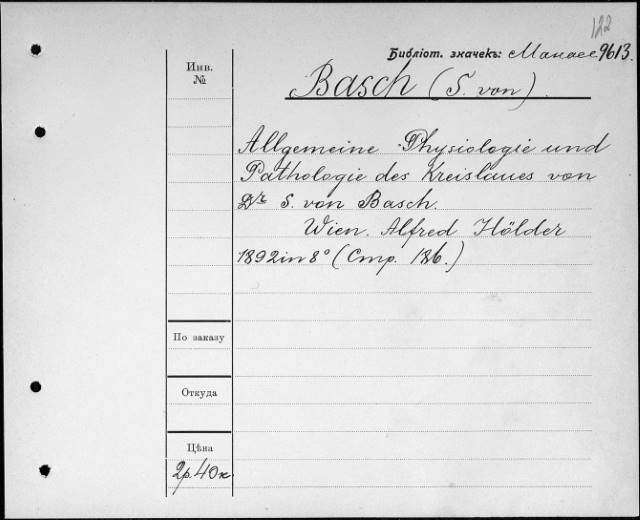 122
Библіот. значекъ: Манасе 9613.
Инв.
№
Basch (S. von).
Allgemeine Physiologie und
Pathologie des Kreislaues von
Dr S. von Basch.
Wien. Alfred Hölder
1892 in 8° (Стр. 186.)
По заказу
Откуда
Цѣна
2р. 40к.